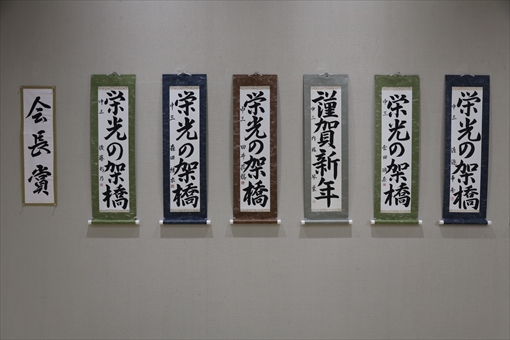 会長賞
栄光の架橋
栄光の架橋
中三
栄光の架橋
中三
謹賀新年
中三
栄光の架橋
栄光の架橋
中三